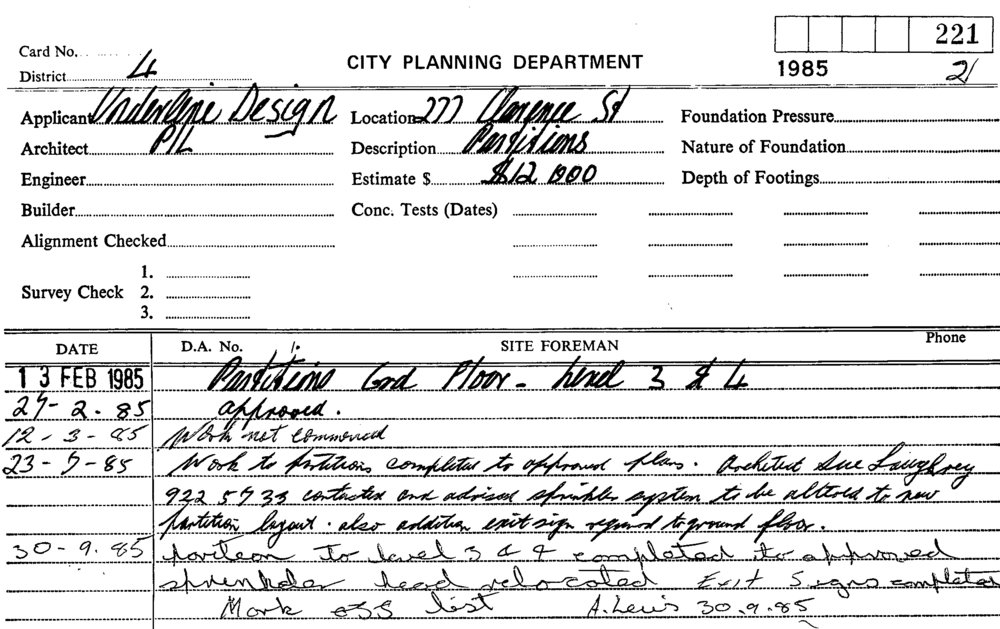 221
Card No.
CITY PLANNING DEPARTMENT
1985 21
District 4
Applicant Underline Design Location 277 Clarence St Foundation Pressure
Architect P/L Description Partitions Nature of Foundation
Engineer Estimate $ $12 000 Depth of Footings
Builder Conc. Tests (Dates)
Alignment Checked
1.
Survey Check 2.
3.
DATE D.A. No. SITE FOREMAN Phone
13 FEB 1985 Partitions Gnd Floor - Level 3 & 4
27-2.85 approved.
12-3-85 Work not commenced
23-5-85 Work to partitions completed to approved plans. Architect Sue Loughrey
922 5733 contacted and advised sprinkler system to be altered to new
partition layout. also addition exit sign required to ground floor.
30-9.85 partieon to level 3 & 4 completed to approved
sprenkder head relocated Exit Signs completed
Mark off list A. Lewis 30.9.85